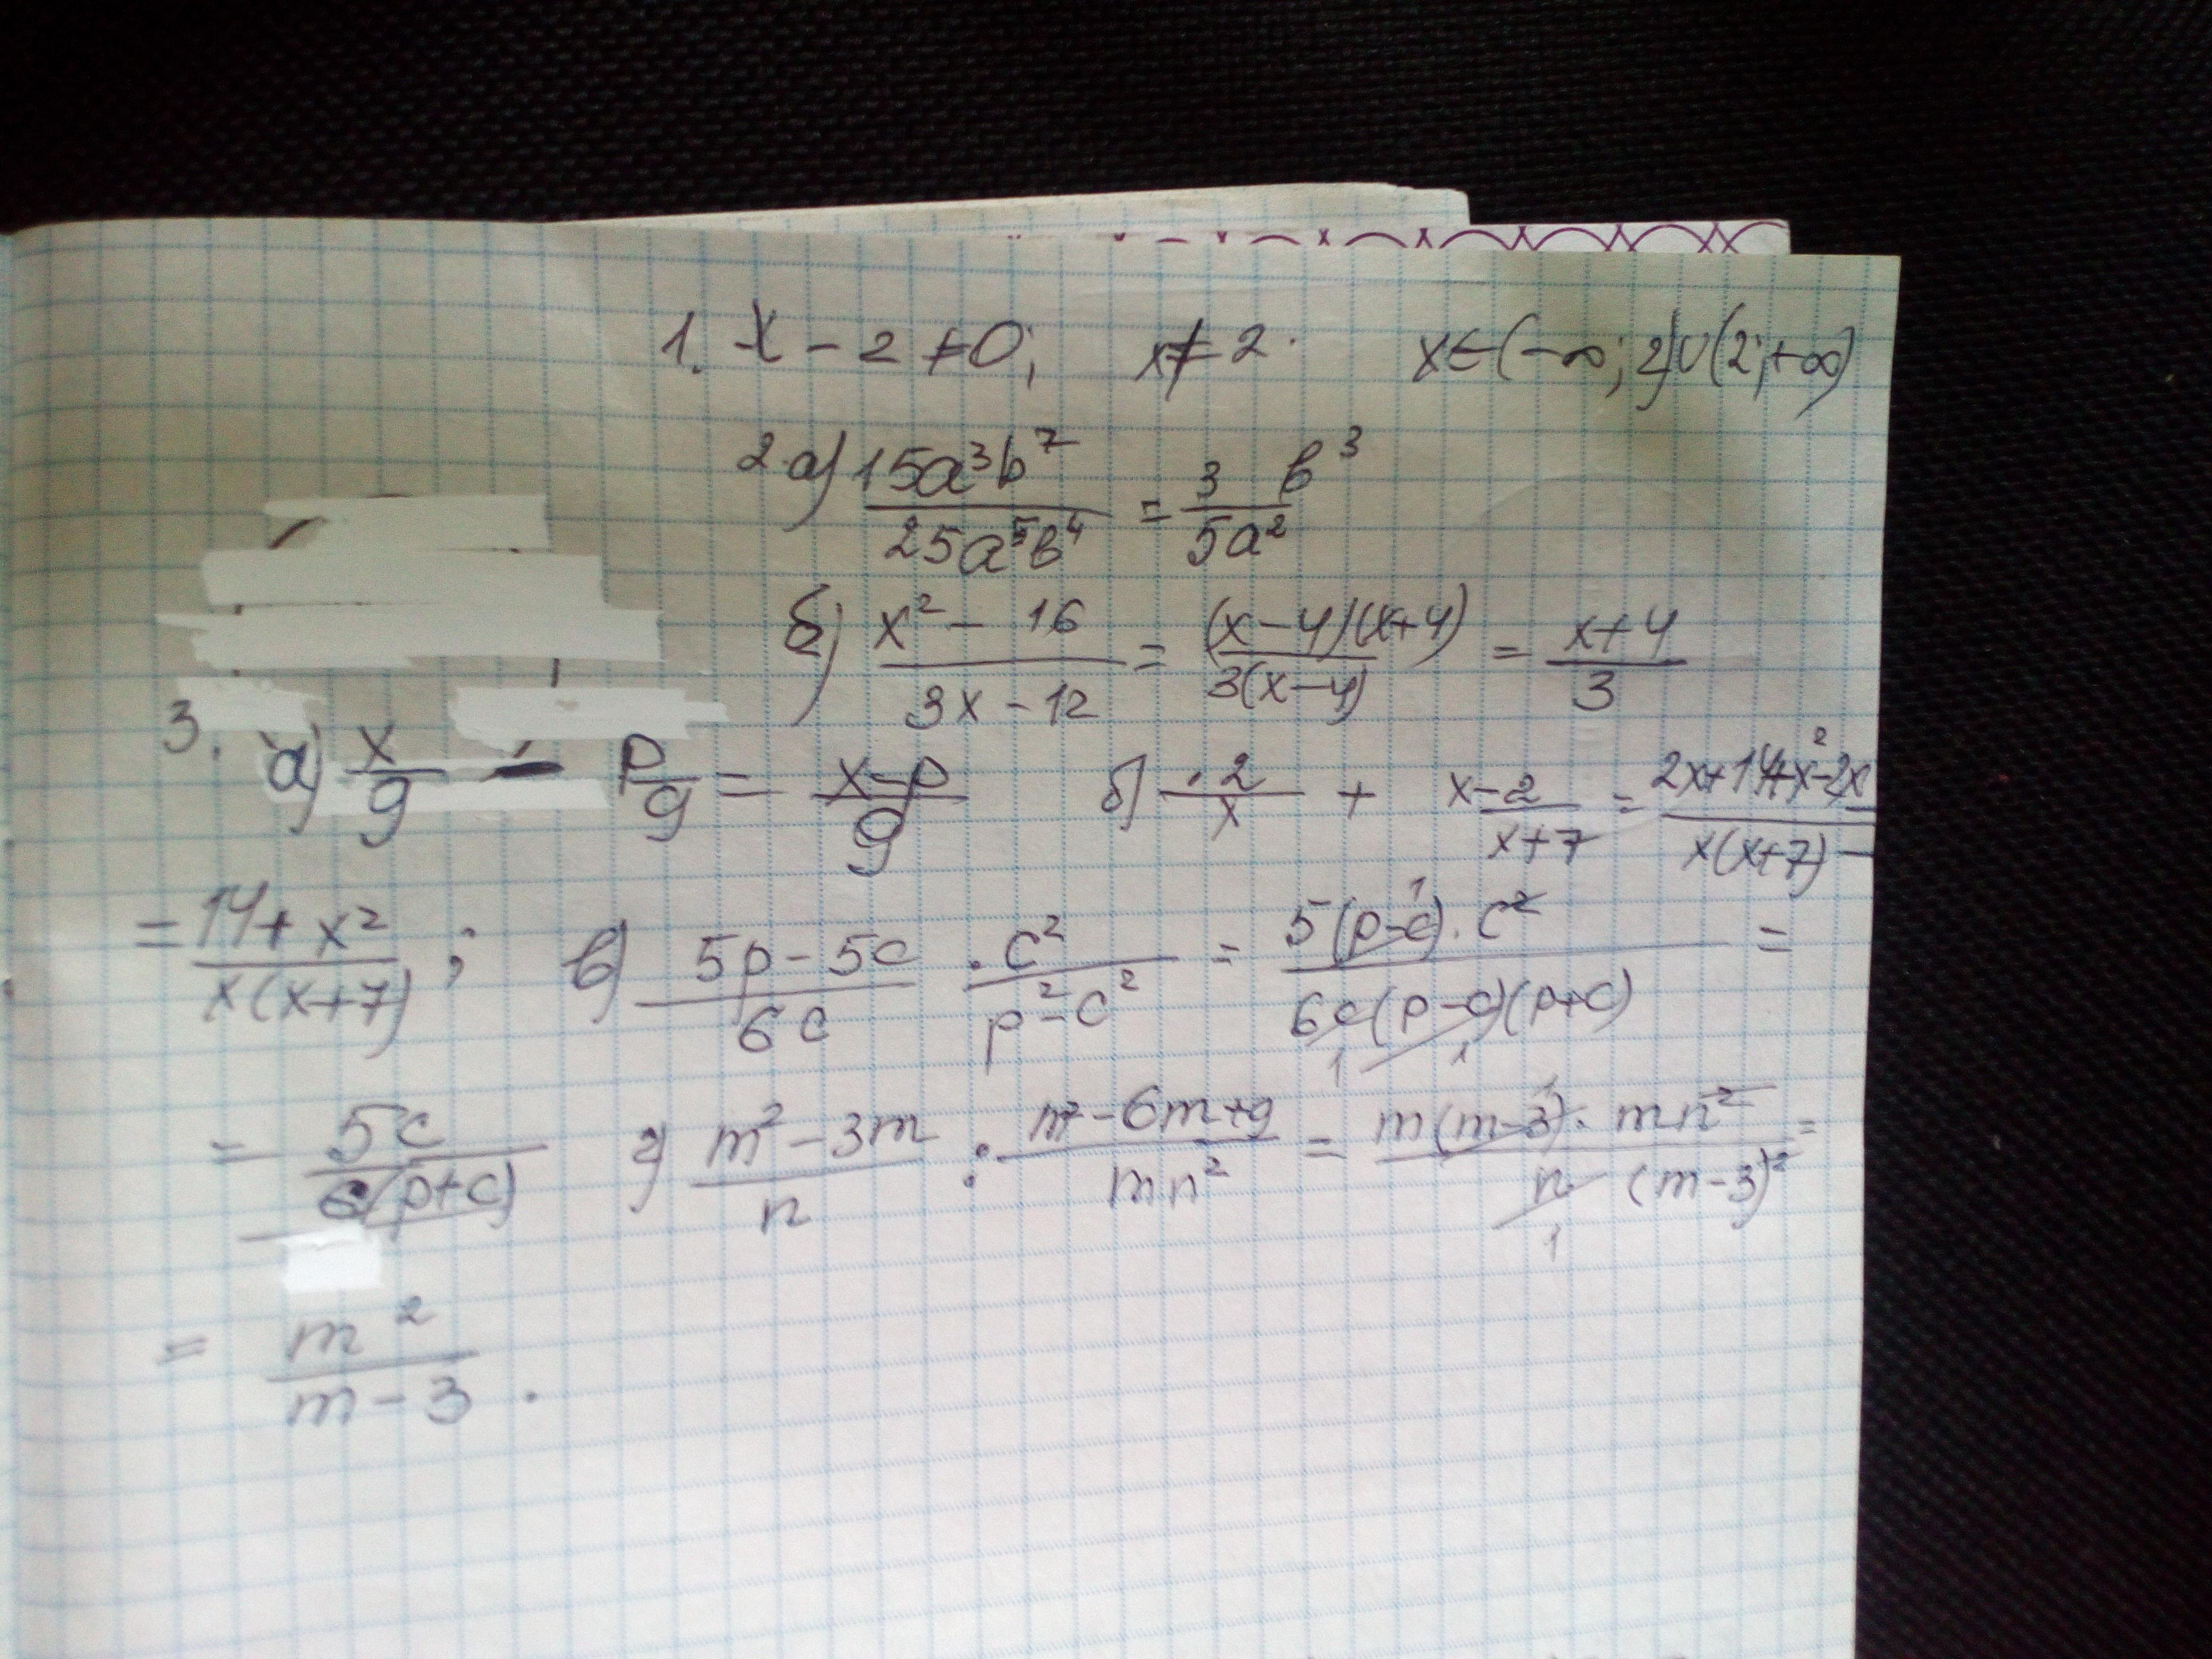 1. x - 2 ≠ 0; x ≠ 2. x ∈ (-∞; 2) ∪ (2; +∞)
2 а) 15a³b⁷ / 25a⁵b⁴ = 3 b³ / 5a²
б) x² - 16 / 3x - 12 = (x-4)(x+4) / 3(x-4) = x+4 / 3
3. а) x/9 - p/9 = x-p / 9 б) 2/x + x-2 / x+7 = 2x+14+x²-2x / x(x+7) =
= 14+x² / x(x+7) ; в) 5p-5c / 6c · c² / p²-c² = 5(p-c)·c² / 6c(p-c)(p+c) =
= 5c / 6(p+c) г) m²-3m / n : m²-6m+9 / mn² = m(m-3)·mn² / n (m-3)² =
= m² / m-3 .